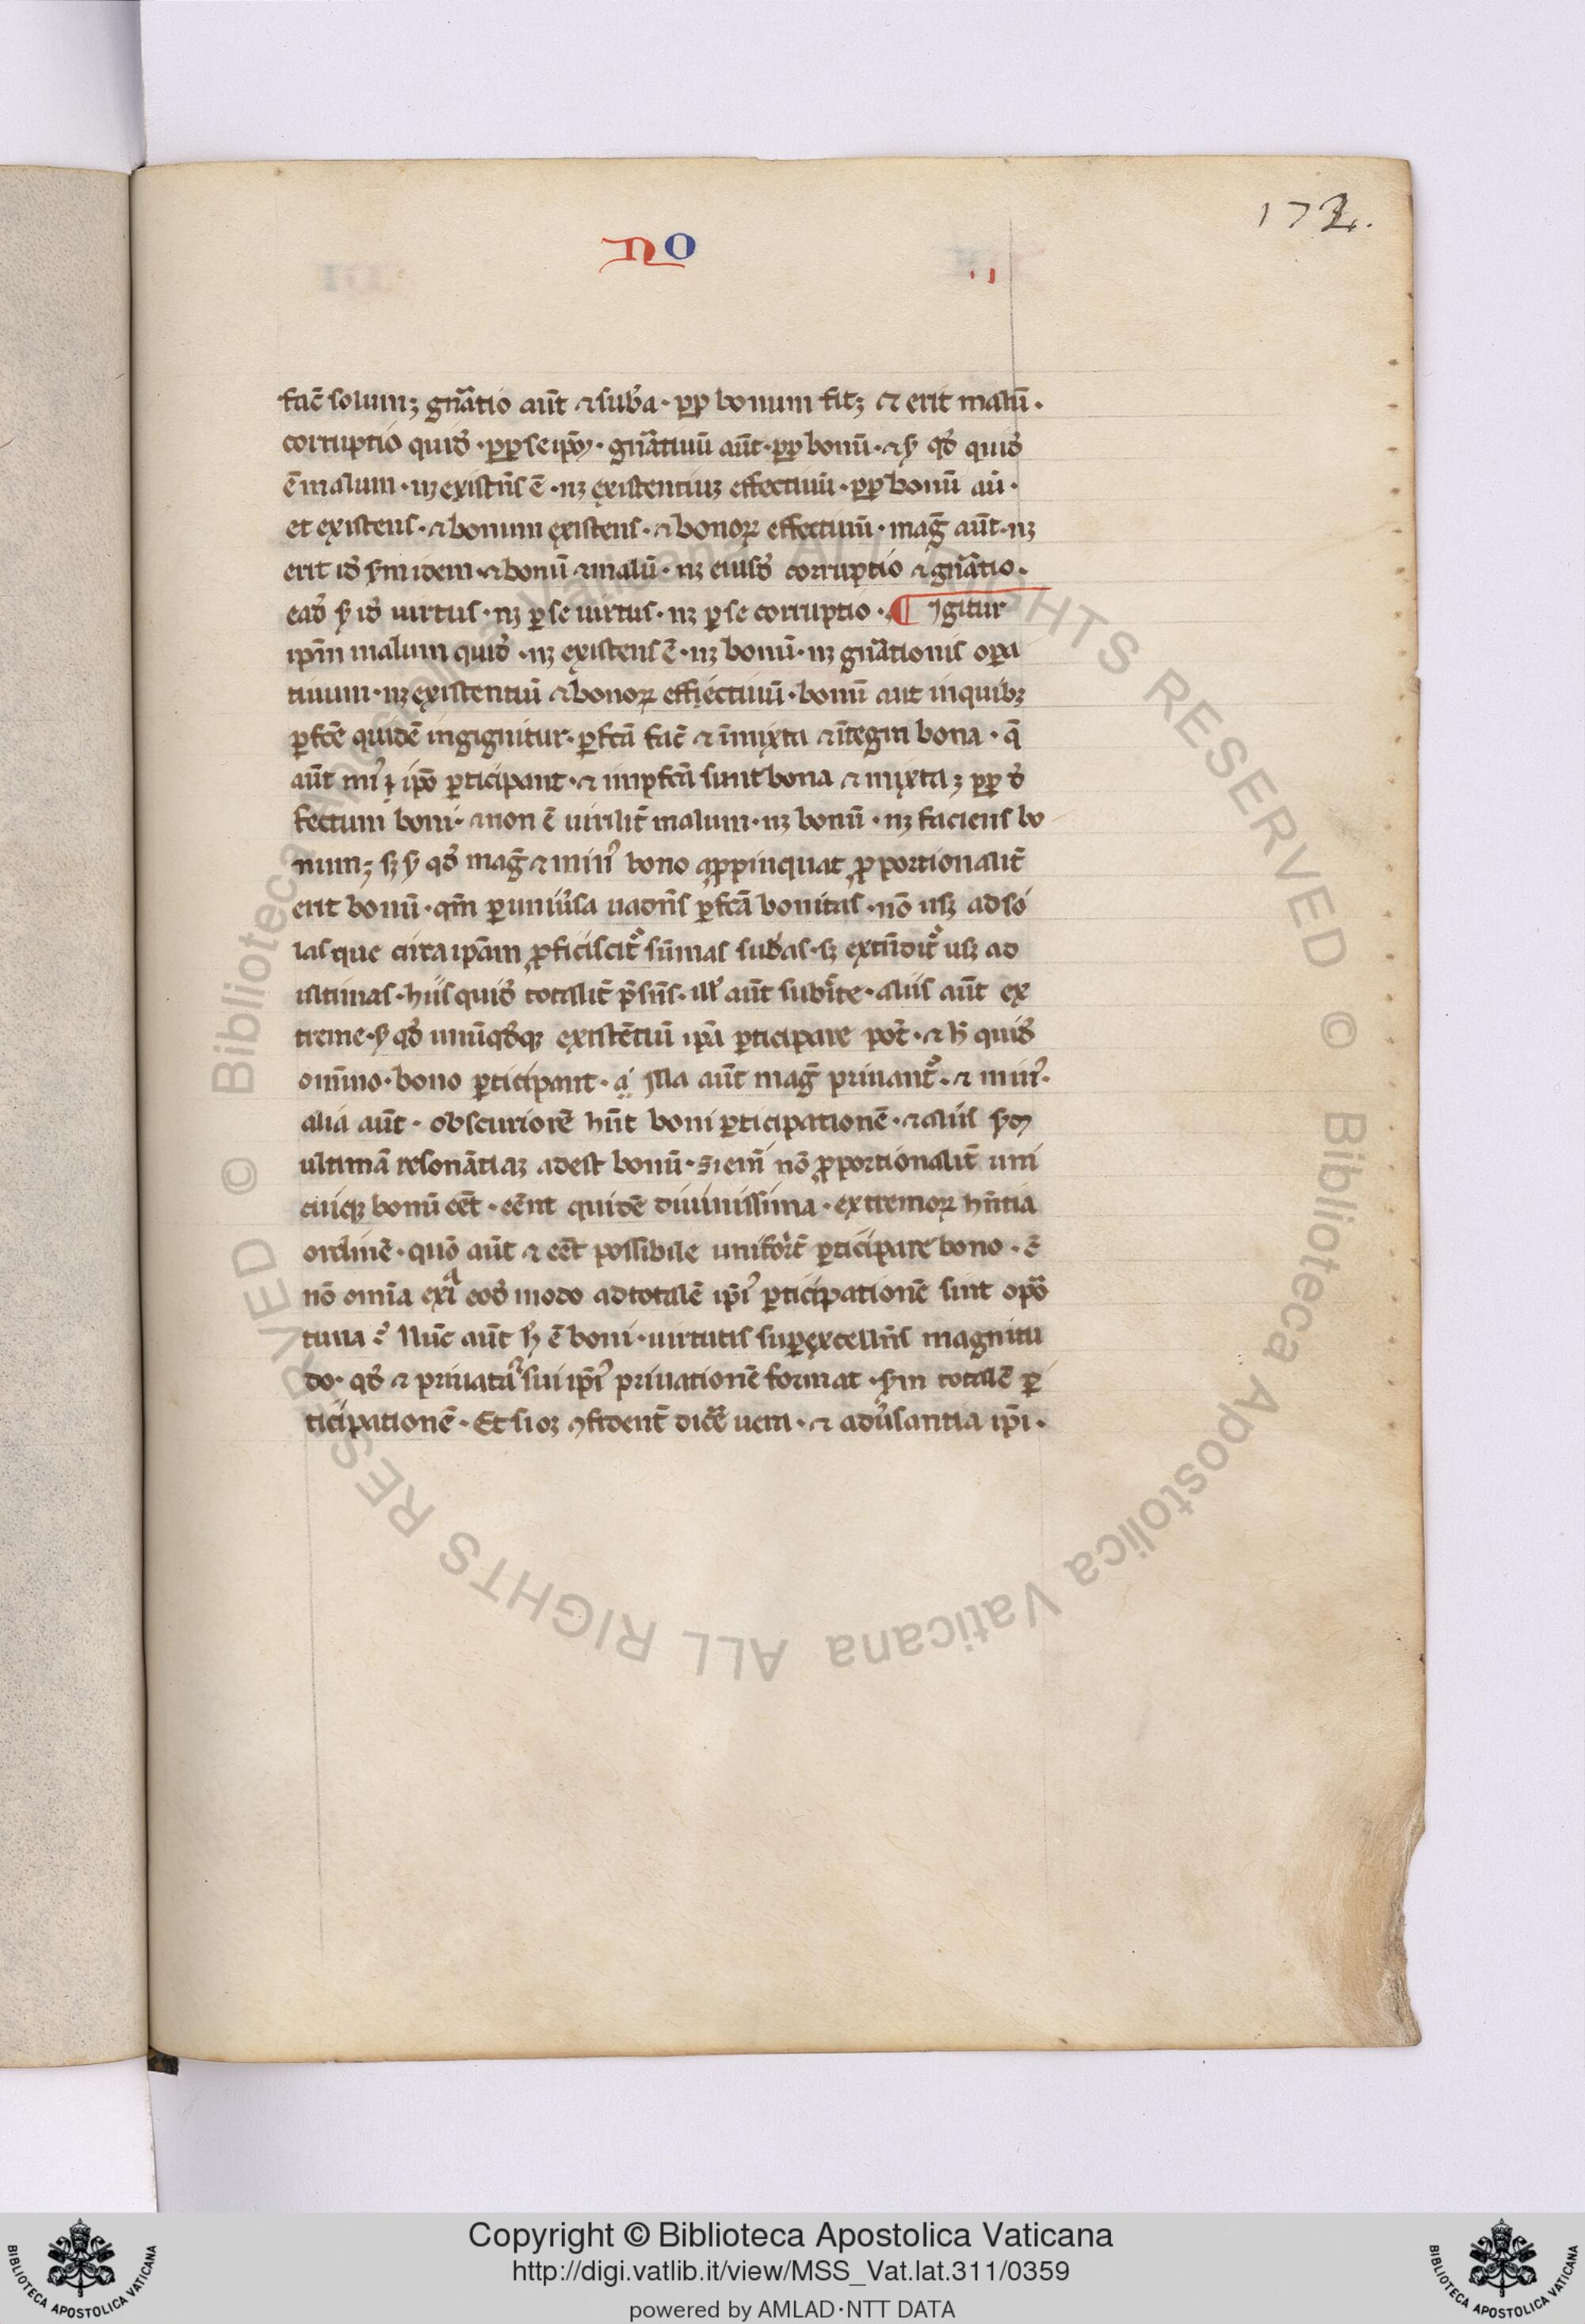 172.
no
facē solum; gn̄atio aūt ⁊ suba · ꝓp bonum fit; ⁊ erit malū ·
corruptio quid̾ · ꝓp seip̄m · gn̄atiuū aūt · ꝓp bonū · ⁊ ẜ qd̾ quid̾
ē malum · nꝫ existn̄s ē · nꝫ existentiuꝫ effectiuū · ꝓp bonū aū ·
et existens · ⁊ bonum existens · ⁊ bonoꝝ effectiuū · maḡ aūt · nꝫ
erit id̾ ẜm idem · ⁊ bonū ⁊ malū · nꝫ eiusd̾ corruptio ⁊ gn̄atio ·
ead̾ ẜ id̾ uirtus · nꝫ ꝑ se uirtus · nꝫ ꝑ se corruptio · ¶ Igitur
ip̄m malum quid̾ · nꝫ existens ē · nꝫ bonū · nꝫ gn̄ationis opa
tiuum · nꝫ existentiū ⁊ bonoꝝ effectiuū · bonū aut in quibꝫ
ꝑfc̄e quidē ingignitur · ꝑfcā fac̄ ⁊ īmixta ⁊ ītegra bona · q̄
aūt min̾ ip̄o ꝑticipant · ⁊ imꝑfcā sunt bona ⁊ mixta; ꝓp d̾
fectum boni · ⁊ non ē uniu̾lit̄ malum · nꝫ bonū · nꝫ faciens bo
num; sꝫ ẜ qd̾ maḡ ⁊ min̾ bono aꝓpinquat ꝓportionalit̄
erit bonū · qm̄ ꝑ uniu̾sa uadn̄s ꝑfcā bonitas · nō usꝫ ad so
las que circa ip̄am ꝓficiscit̾ sūmas subas · sꝫ extn̄dit̾ usꝫ ad
ultimas · hiis quid̾ totalit̄ p̄sn̄s · ill̾ aūt subīcte · aliis aūt ex
treme · ẜ qd̾ unūqd̾qꝫ existētiū ip̄a ꝑticipare pōt · ⁊ h̄ quid̾
om̄no · bono ꝑticipant · illa aūt maḡ priuant̾ · ⁊ min̾ ·
alia aūt · obscuriorē hn̄t boni ꝑticipationē · ⁊ aliis ẜm
ultimā resonātiaꝫ adest bonū · si em̄ nō ꝓportionalit̄ uni
cuiqꝫ bonū eēt · eēnt quidē diuinissima · extremoꝝ hn̄tia
ordinē · quō aūt ⁊ eēt possibile unifor̄t ꝑticipare bono · c̄
nō om̄ia exn̄a eod̾ modo ad totalē ip̄i̾ ꝑticipationē sint opo̾
tuna ? Nūc aūt h̾ ē boni · uirtutis suꝑexcelln̄s magnitu
do · qd̾ ⁊ priuata̾ sui ip̄i̾ priuationē format · ẜm totalē ꝑ
ticipationē · Et si oꝫ ꝯfident̄ dicē uera · ⁊ adu̾santia ip̄i ·
© Biblioteca Apostolica Vaticana ALL RIGHTS RESERVED
© Biblioteca Apostolica Vaticana ALL RIGHTS RESERVED
Copyright © Biblioteca Apostolica Vaticana
http://digi.vatlib.it/view/MSS_Vat.lat.311/0359
powered by AMLAD·NTT DATA
BIBLIOTECA APOSTOLICA VATICANA
BIBLIOTECA APOSTOLICA VATICANA